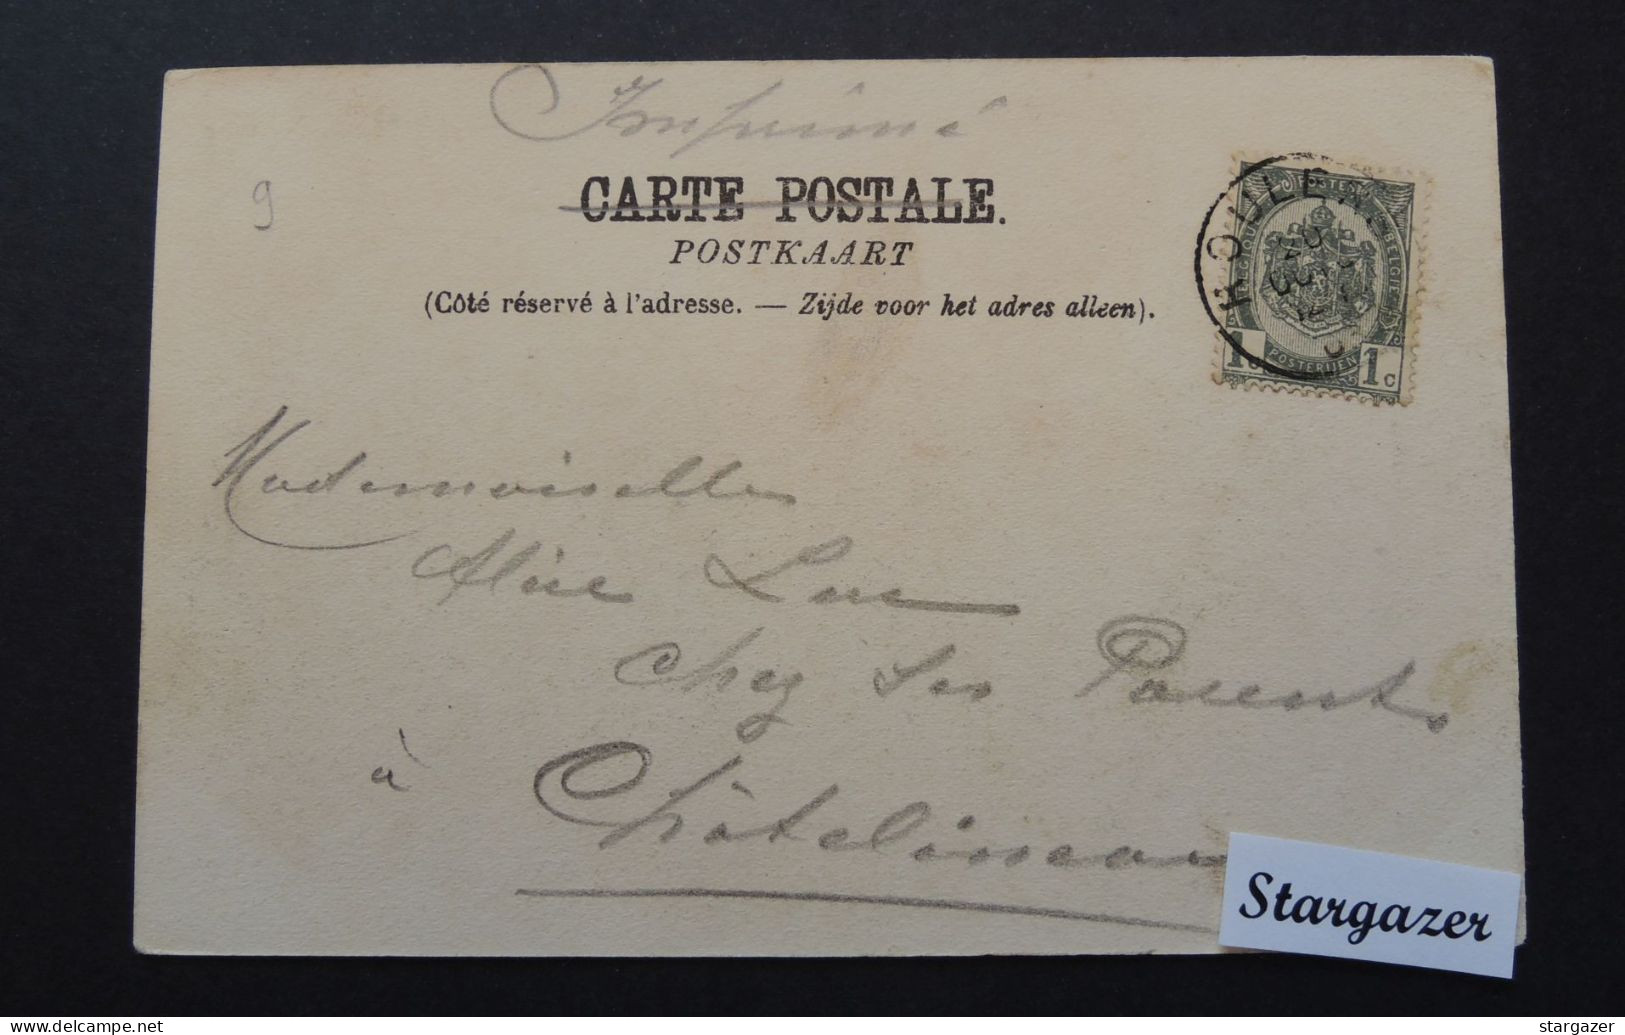 Imprimé
CARTE POSTALE.
POSTKAART
(Côté réservé à l'adresse. — Zijde voor het adres alleen).
9
POSTES
BELGIQUE
BELGIE
POSTERIJEN
1c 1c
Mademoiselle
Alice Luc
Chez ses Parents
à Châtelineau
Stargazer
stargazer